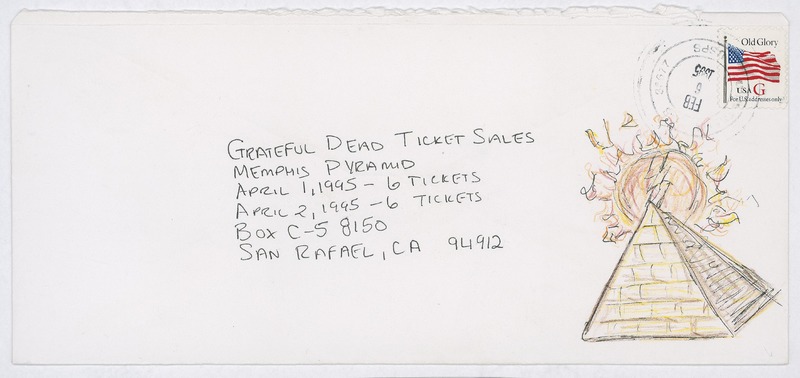 Old Glory
USA G
For U.S. addresses only
USPS
FEB
6
1995
GRATEFUL DEAD TICKET SALES
MEMPHIS PYRAMID
APRIL 1, 1995 - 6 TICKETS
APRIL 2, 1995 - 6 TICKETS
BOX C-S 8150
SAN RAFAEL, CA 94912